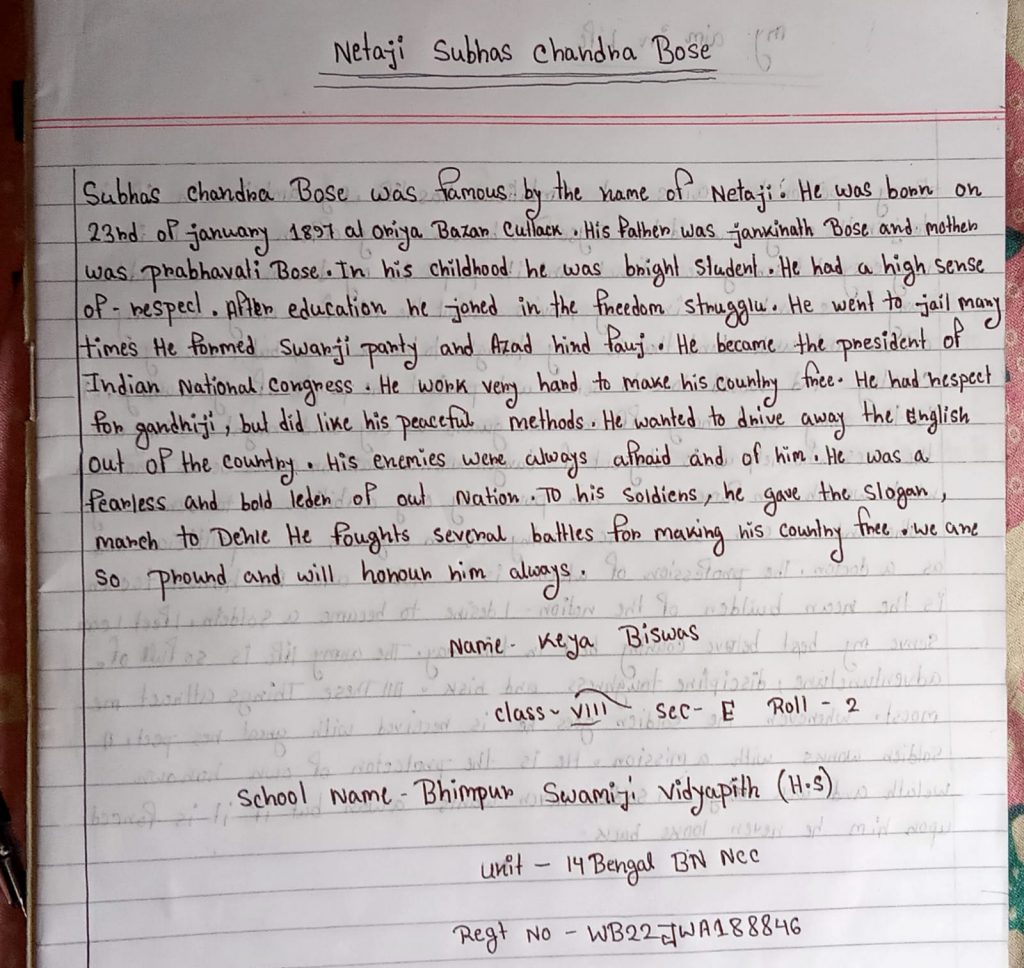 Netaji Subhas Chandra Bose
Subhas Chandra Bose was famous by the name of Netaji. He was born on
23rd of january 1897 at oriya Bazar Cuttack. His father was jankinath Bose and mother
was prabhavati Bose. In his childhood he was bright student. He had a high sense
of - respect. After education he joned in the freedom strugglu. He went to jail many
times He formed Swarji party and Azad hind fauj. He became the president of
Indian National Congress. He work very hard to make his country free. He had respect
for gandhiji, but did like his peaceful methods. He wanted to drive away the English
out of the country. His enemies were always afraid and of him. He was a
fearless and bold leder of out Nation. To his soldiers, he gave the slogan,
march to Dehle He foughts several battles for making his country free. we are
so pround and will honour him always.
Name - Keya Biswas
class - VIII sec - E Roll - 2
School Name - Bhimpur Swamiji Vidyapith (H.S)
unit - 14 Bengal BN NCC
Regt No - WB22JWA188846